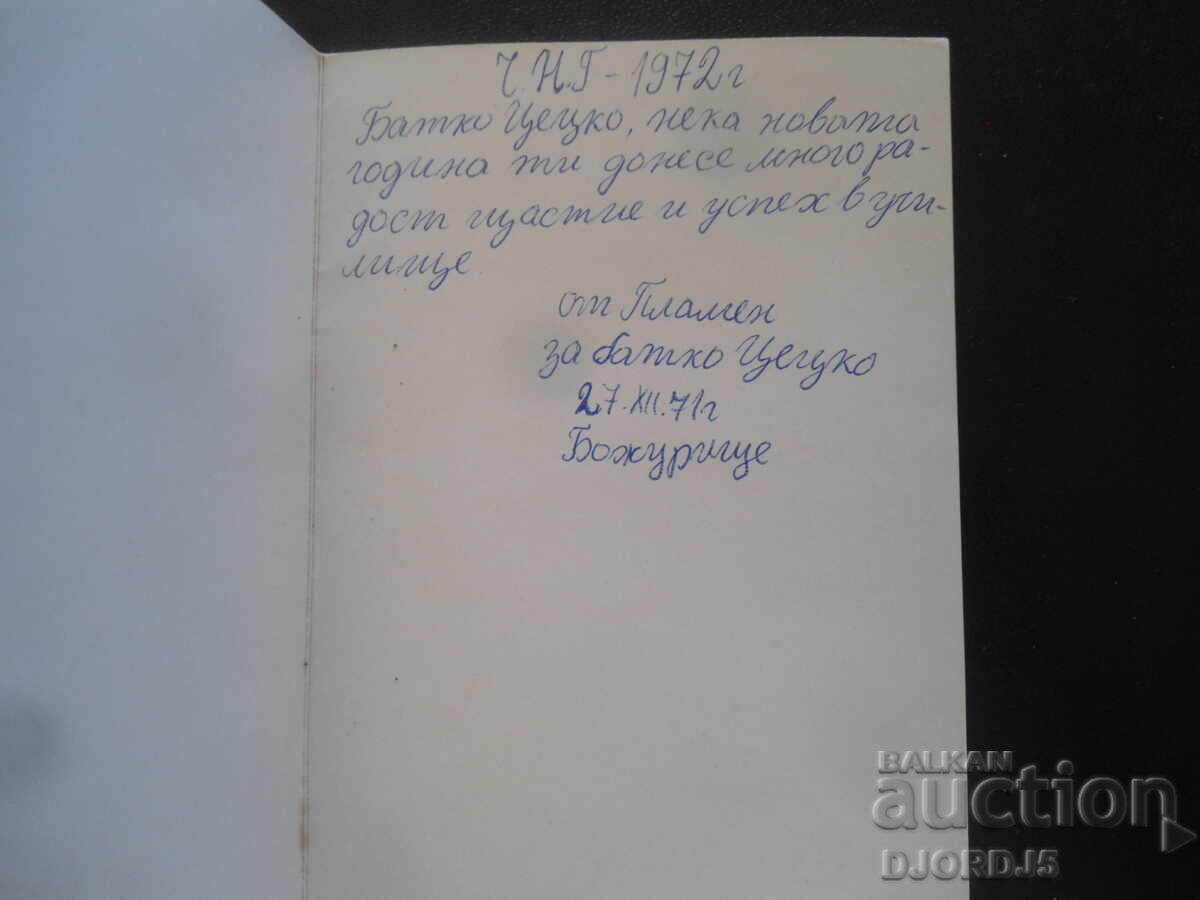 Ч.Н.Г - 1972 г
Батко Цецко, нека новата
година ти донесе много ра-
дост щастие и успех в учи-
лище.
от Пламен
за батко Цецко
27.XII.71г
Божурище
BALKAN
auction
DJORDJ5